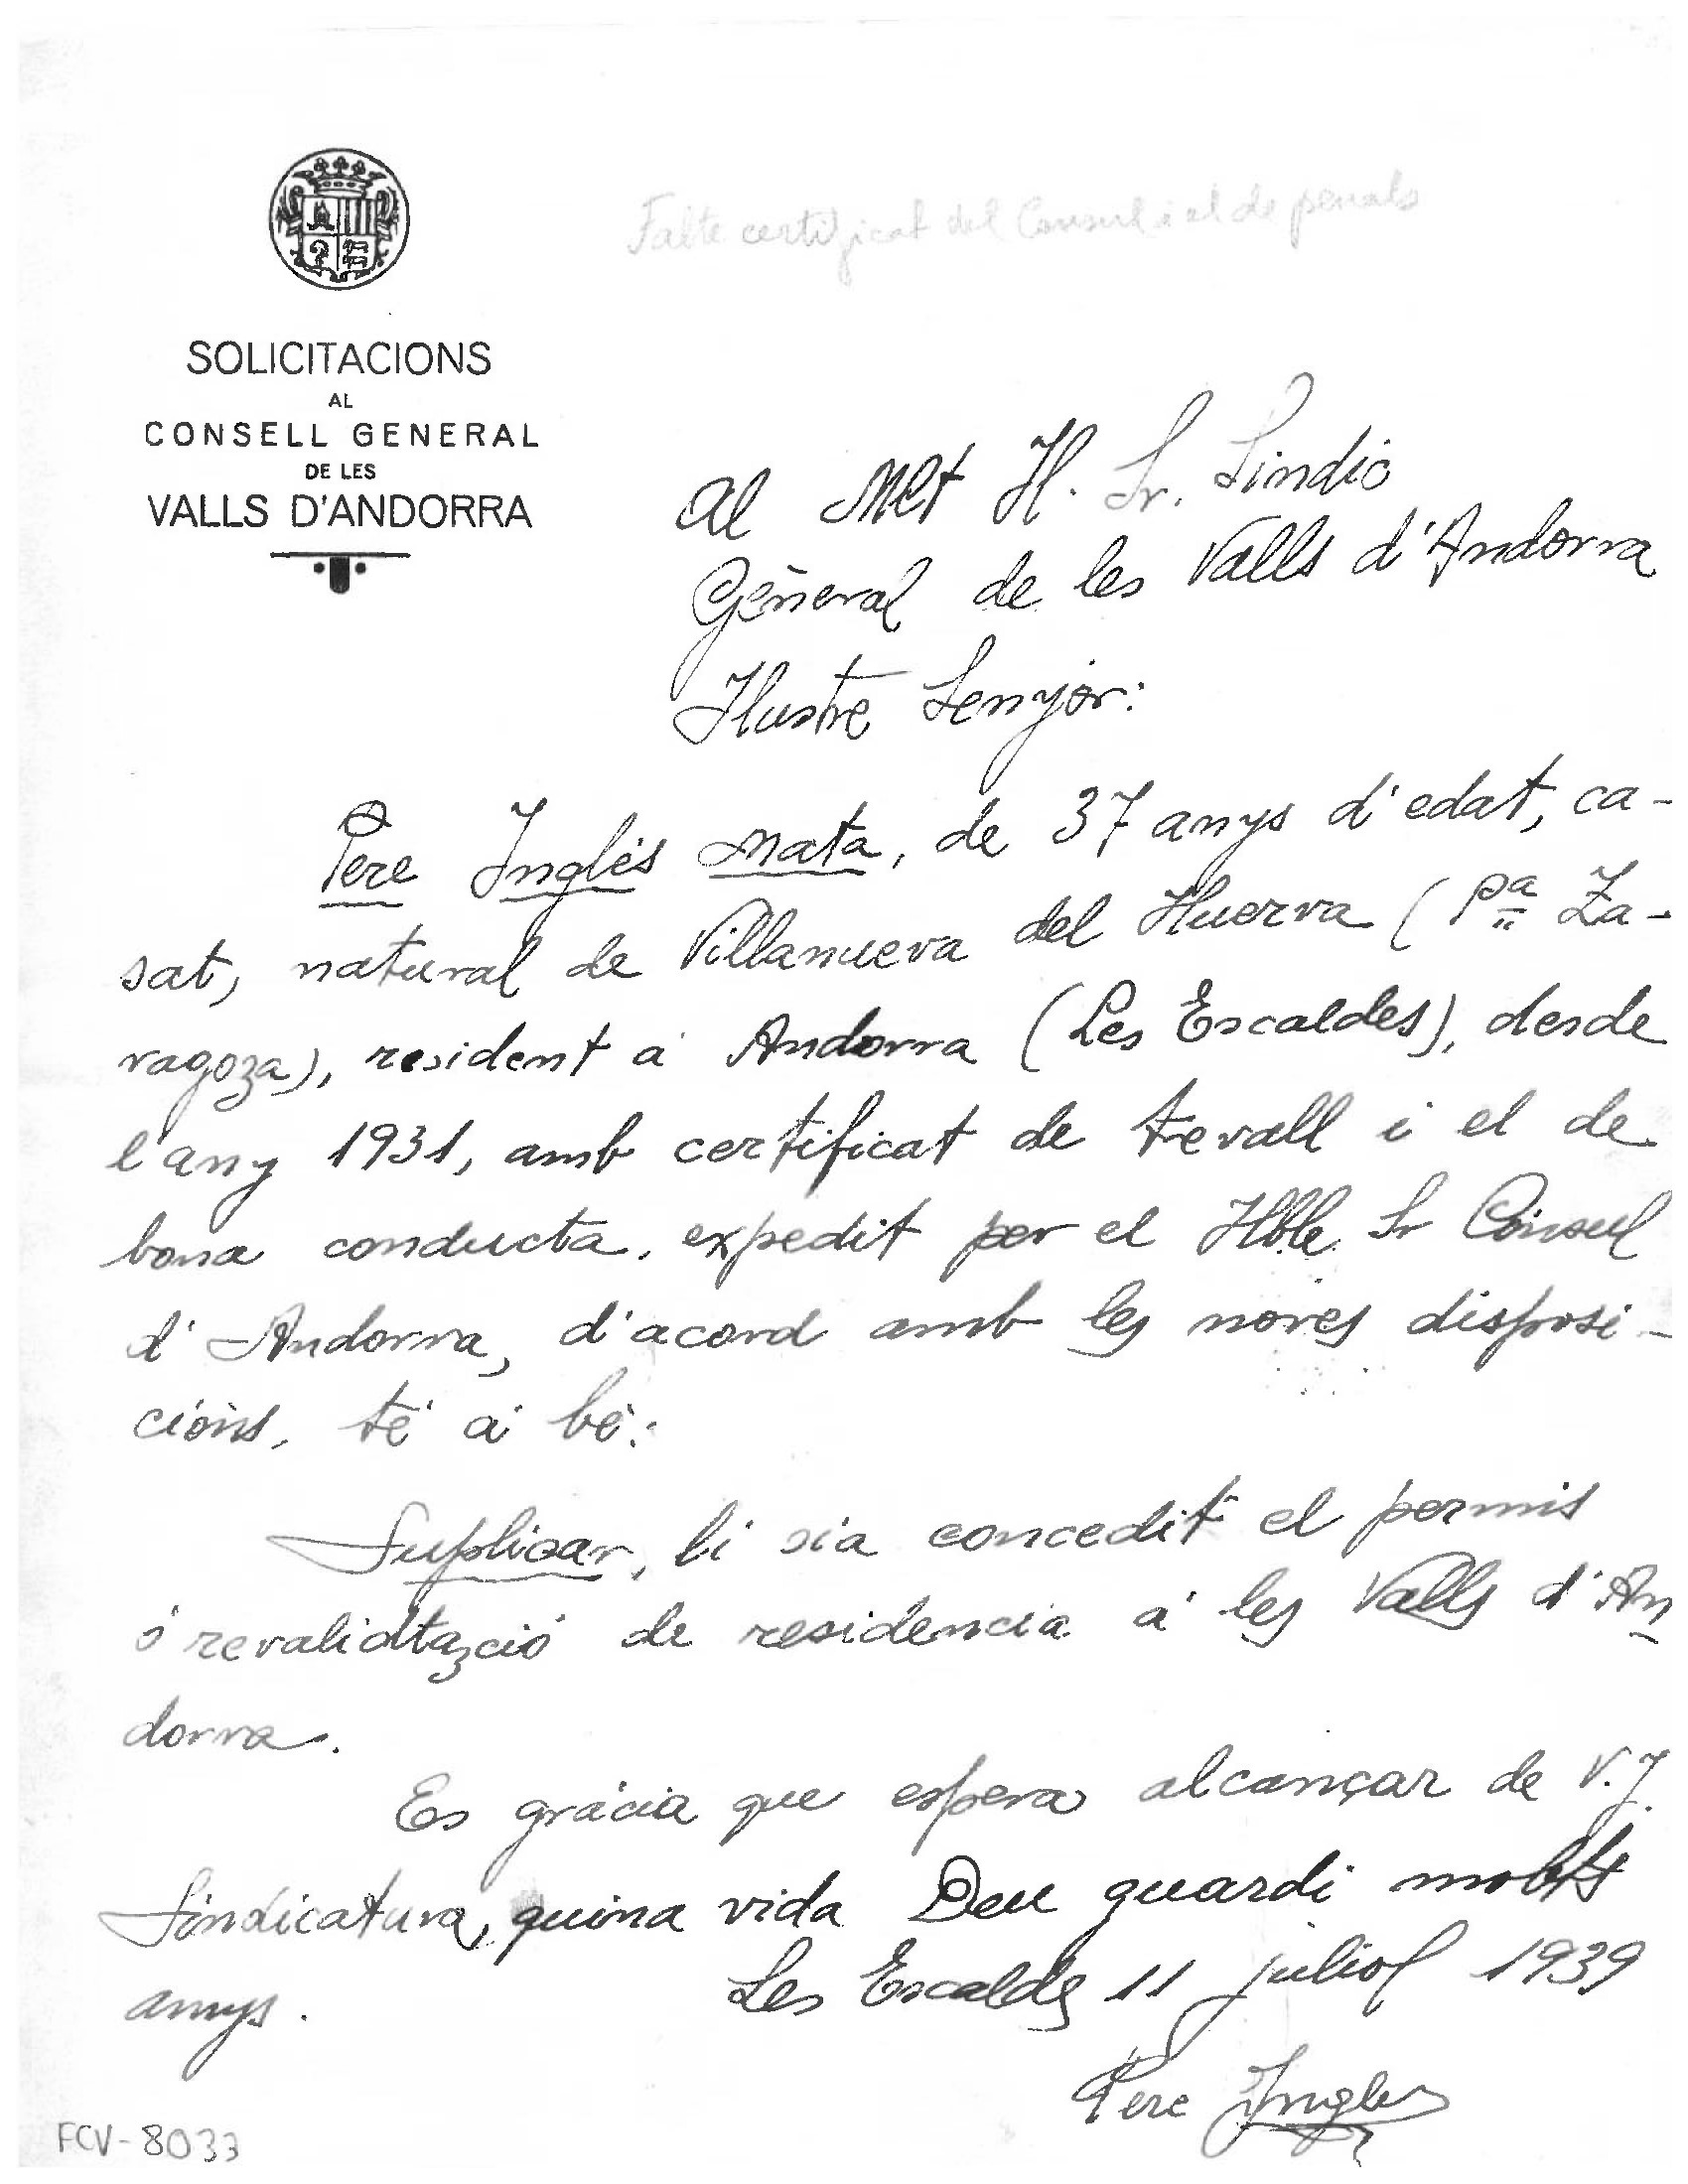 Falte certificat del Consul i el de penals
SOLICITACIONS
AL
CONSELL GENERAL
DE LES
VALLS D'ANDORRA
Al Mlt H. Sr. Sindic
Géneral de les Valls d'Andorra
Ilustre Senyor:
Pere Inglés Mata, de 37 anys d'edat, ca-
sat, natural de Villanueva del Huerva (Pª Za-
ragoza), resident á Andorra (Les Escaldes), desde
l'any 1931, amb certificat de trevall i el de
bona conducta, expedit per el Hble. Sr Cónsul
d'Andorra, d'acord amb les noves disposi-
cións, té á bé:
Suplicar, li sia concedit el permis
ó revalidtazció de residencia á les Valls d'An
dorra.
Es grácia que espera alcançar de V.I.
Sindicatura, quina vida Deu guardi molts
anys.
Les Escaldes 11 juliol 1939
Pere Ingles
FCV-8033